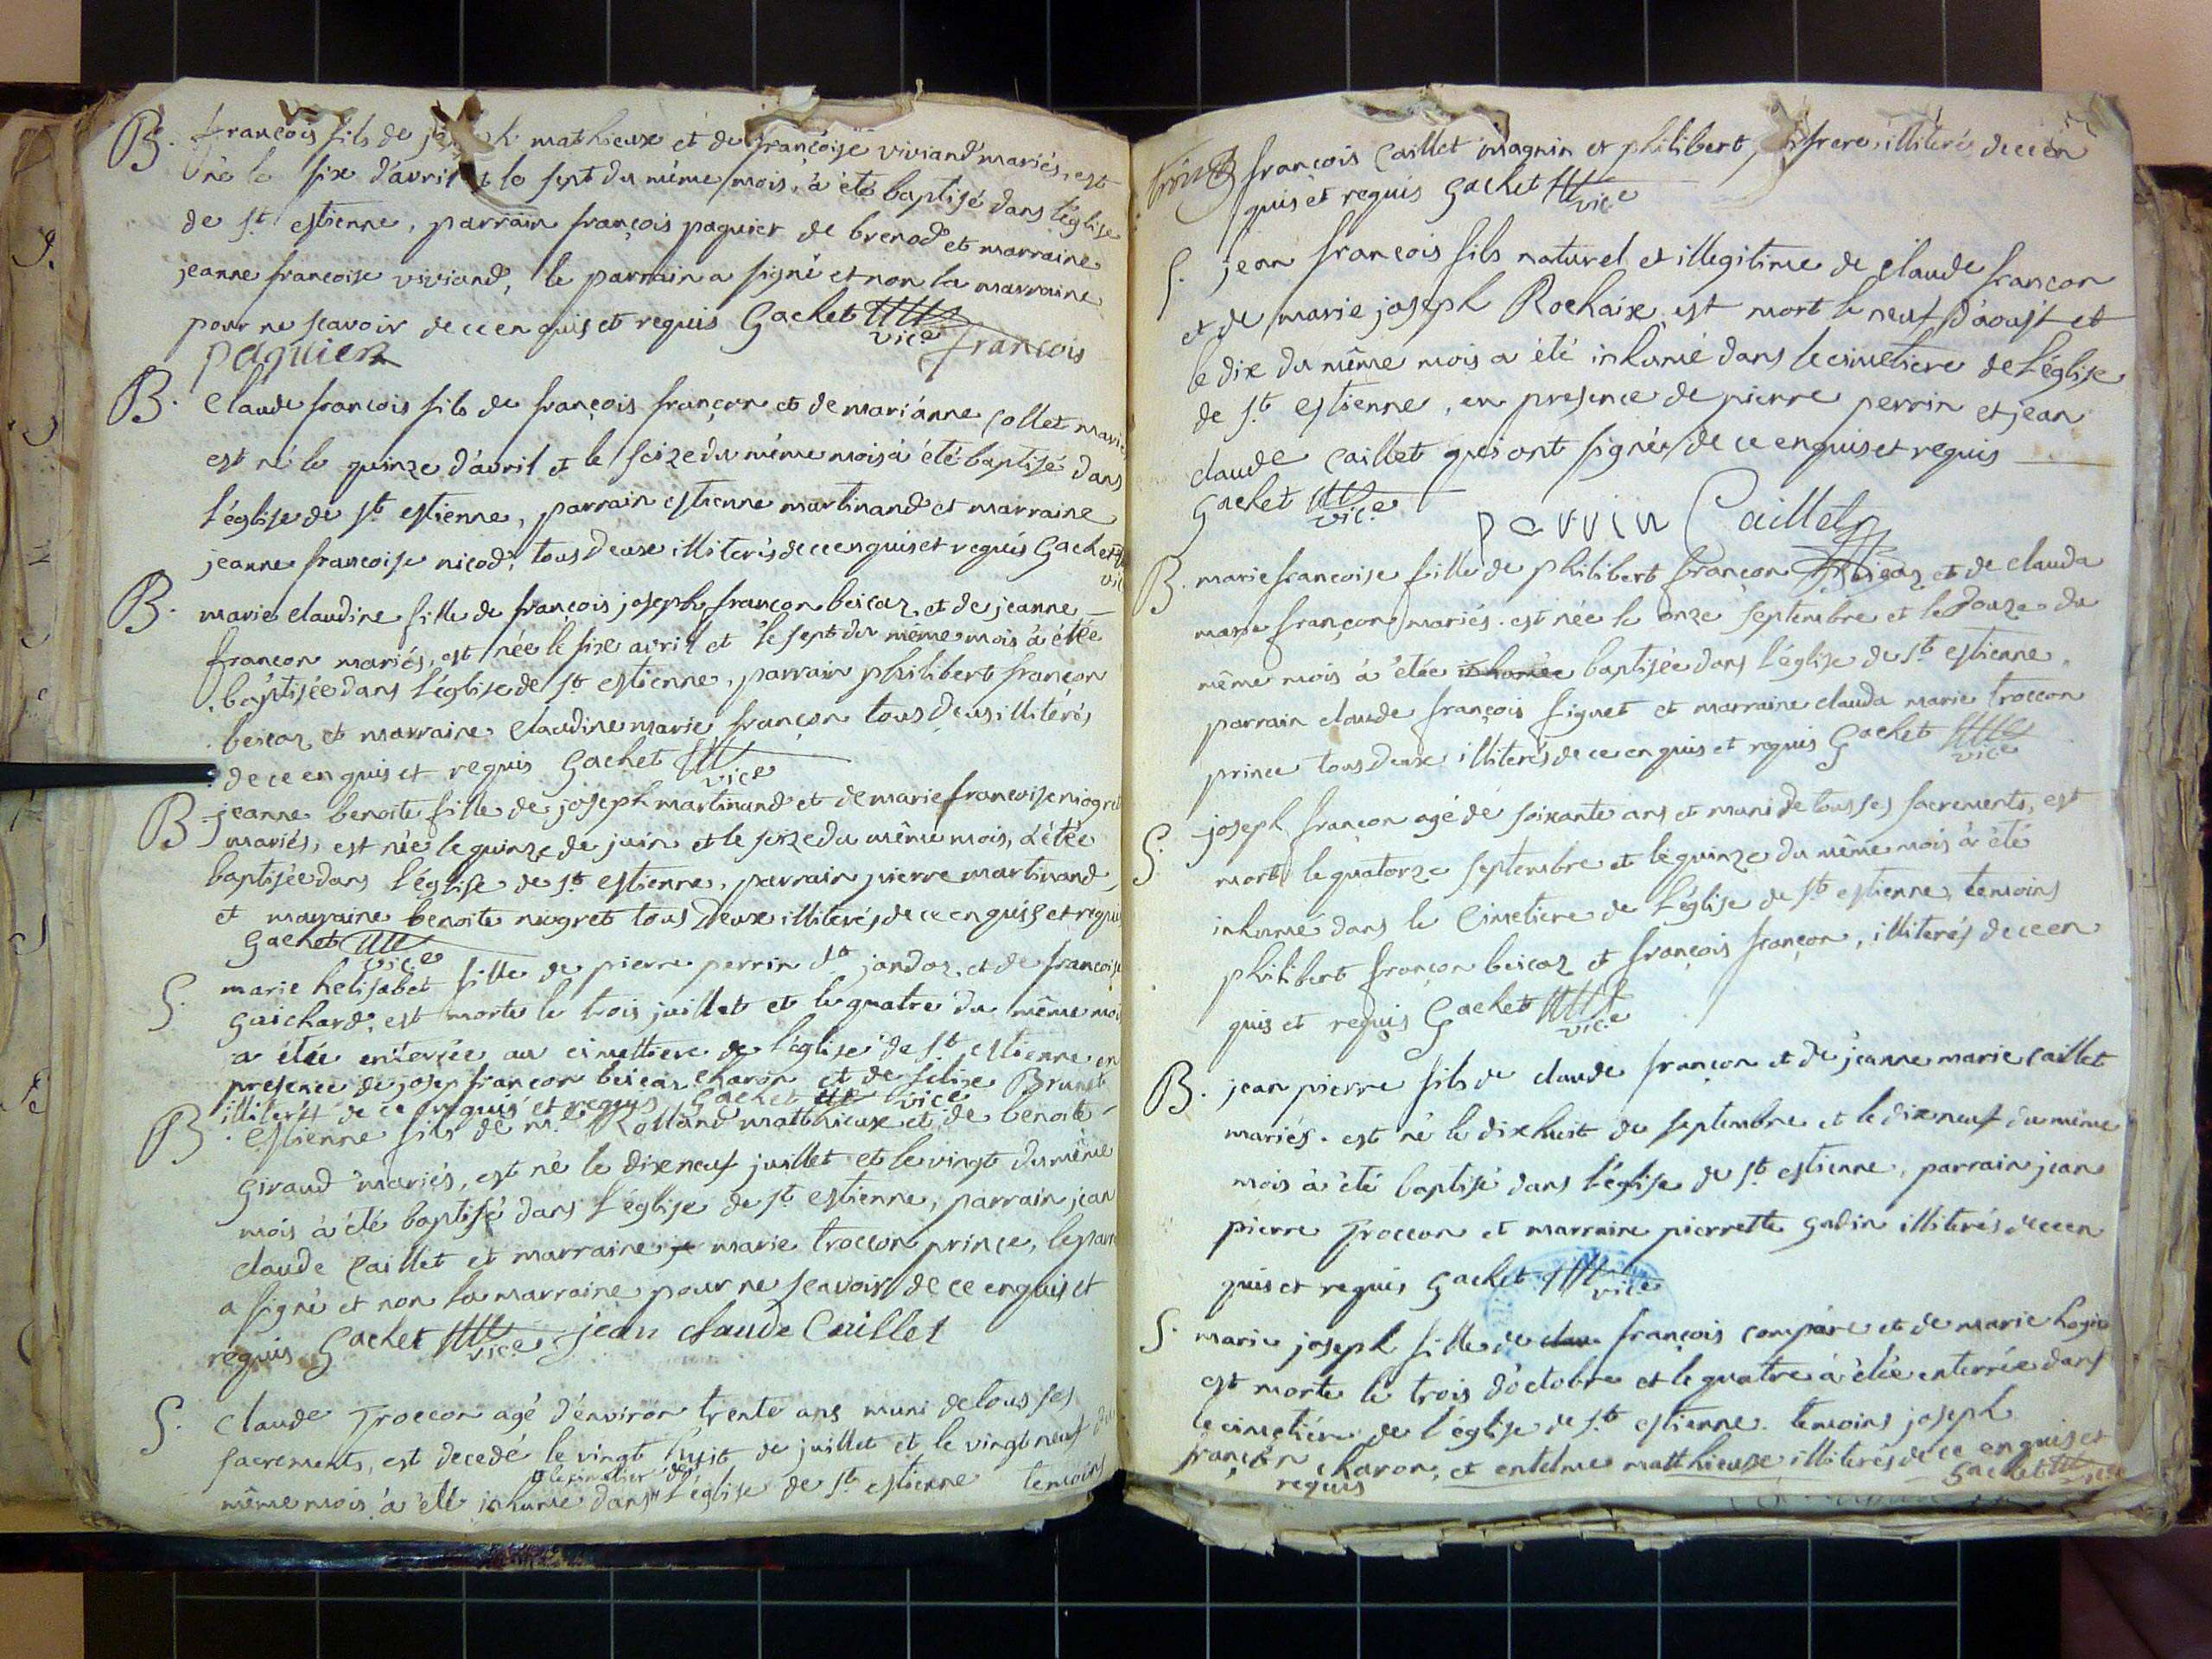 B. francois fils de mathieux et de francoise viviand mariés, est
né le six d'avril et le sept du même mois, à été baptisé dans l'église
de st. estienne, parrain françois paquier de brenod et marraine
jeanne francoise viviand, le parrain a signé et non la marraine
pour ne scavoir de ce enquis et requis Gachet vice francois
paquier
B. Claude francois fils de françois françon et de marianne Collet marié
est né le quinze d'avril et le seize du même mois à été baptisé dans
l'église de st. estienne, parrain estienne martinand et marraine
jeanne francoise nicod, tous deux illiterés de ce enquis et requis Gachet
vice
B. marie claudine fille de françois joseph francon beicaz et de jeanne
francon mariés, est née le six avril et le sept du même mois à étée
baptisée dans l'église de st. estienne, parrain philibert françon
beicaz et marraine Claudine marie françon tous deus illiterés
de ce enquis et requis Gachet vice
B. jeanne benoite fille de joseph martinand et de marie francoise niogret
mariés, est née le quinze de juin et le seize du même mois, à étée
baptisée dans l'église de st. estienne, parrain pierre martinand
et marraine benoite niogret tous deux illiterés de ce enquis et requis
Gachet vice
S. marie helisabet fille de pierre perrin dt. jandoz et de francoise
guichard, est morte le trois juillet et le quatre du même mois
a étée enterrée au cimettiere de l'église de st. estienne en
presence de josep françon beicaz charon et de felise Brunet
illiterés de ce enquis et requis Gachet vice
B. Estienne fils de m. Rolland matthieux et de benoite
Giraud mariés, est né le dixneuf juillet et le vingt du même
mois à été baptisé dans l'église de st. estienne, parrain jean
claude Caillet et marraine marie troccon prince, le parr
a signé et non la marraine pour ne scavoir de ce enquis et
requis Gachet vice jean claude Caillet
S. Claude Troccon agé d'environ trente ans muni de tous ses
sacrements, est decedé le vingt huit de juillet et le vingt neuf du
le cimetier de
même mois à été inhumé dans l'église de st. estienne temoins
françois Caillet magnin et philibert, frere, illiteré, de ce en
quis et requis Gachet vice
S. jean françois fils naturel et illegitime de claude françon
et de marie joseph Rochaix est mort le neuf d'aoust et
le dix du même mois a été inhumé dans le cimetiere de l'église
de st. estienne, en presence de pierre perrin et jean
claude Caillet qui ont signés de ce enquis et requis
Gachet vice
perrin Caillet
B. marie francoise fille de philibert françon beicaz et de clauda
marie françon mariés. est née le onze septembre et le douze du
même mois à étée inhumée baptisée dans l'église de st. estienne
parrain claude françois figuet et marraine clauda marie troccon
prince tous deux illiterés de ce enquis et requis Gachet vice
S. joseph françon agé de soixante ans et muni de tous ses sacrements, est
mort le quatorze septembre et le quinze du même mois à été
inhumé dans le Cimetiere de l'église de st. estienne, temoins
philibert françon beicaz et françois françon, illiterés de ce en
quis et requis Gachet vice
B. jean pierre fils de claude françon et de jeanne marie Caillet
mariés. est né le dix huit de septembre et le dix neuf du même
mois à été baptisé dans l'église de st. estienne, parrain jean
pierre Troccon et marraine pierrette gudin illiterés de ce en
quis et requis Gachet vice
S. marie joseph fille de clau françois compare et de marie hogie
est morte le trois d'octobre et le quatre à étée enterrée dans
le cimetiére de l'église de st. estienne. temoins joseph
françon charon, et entelme matthieux illiterés de ce enquis et
requis Gachet vice